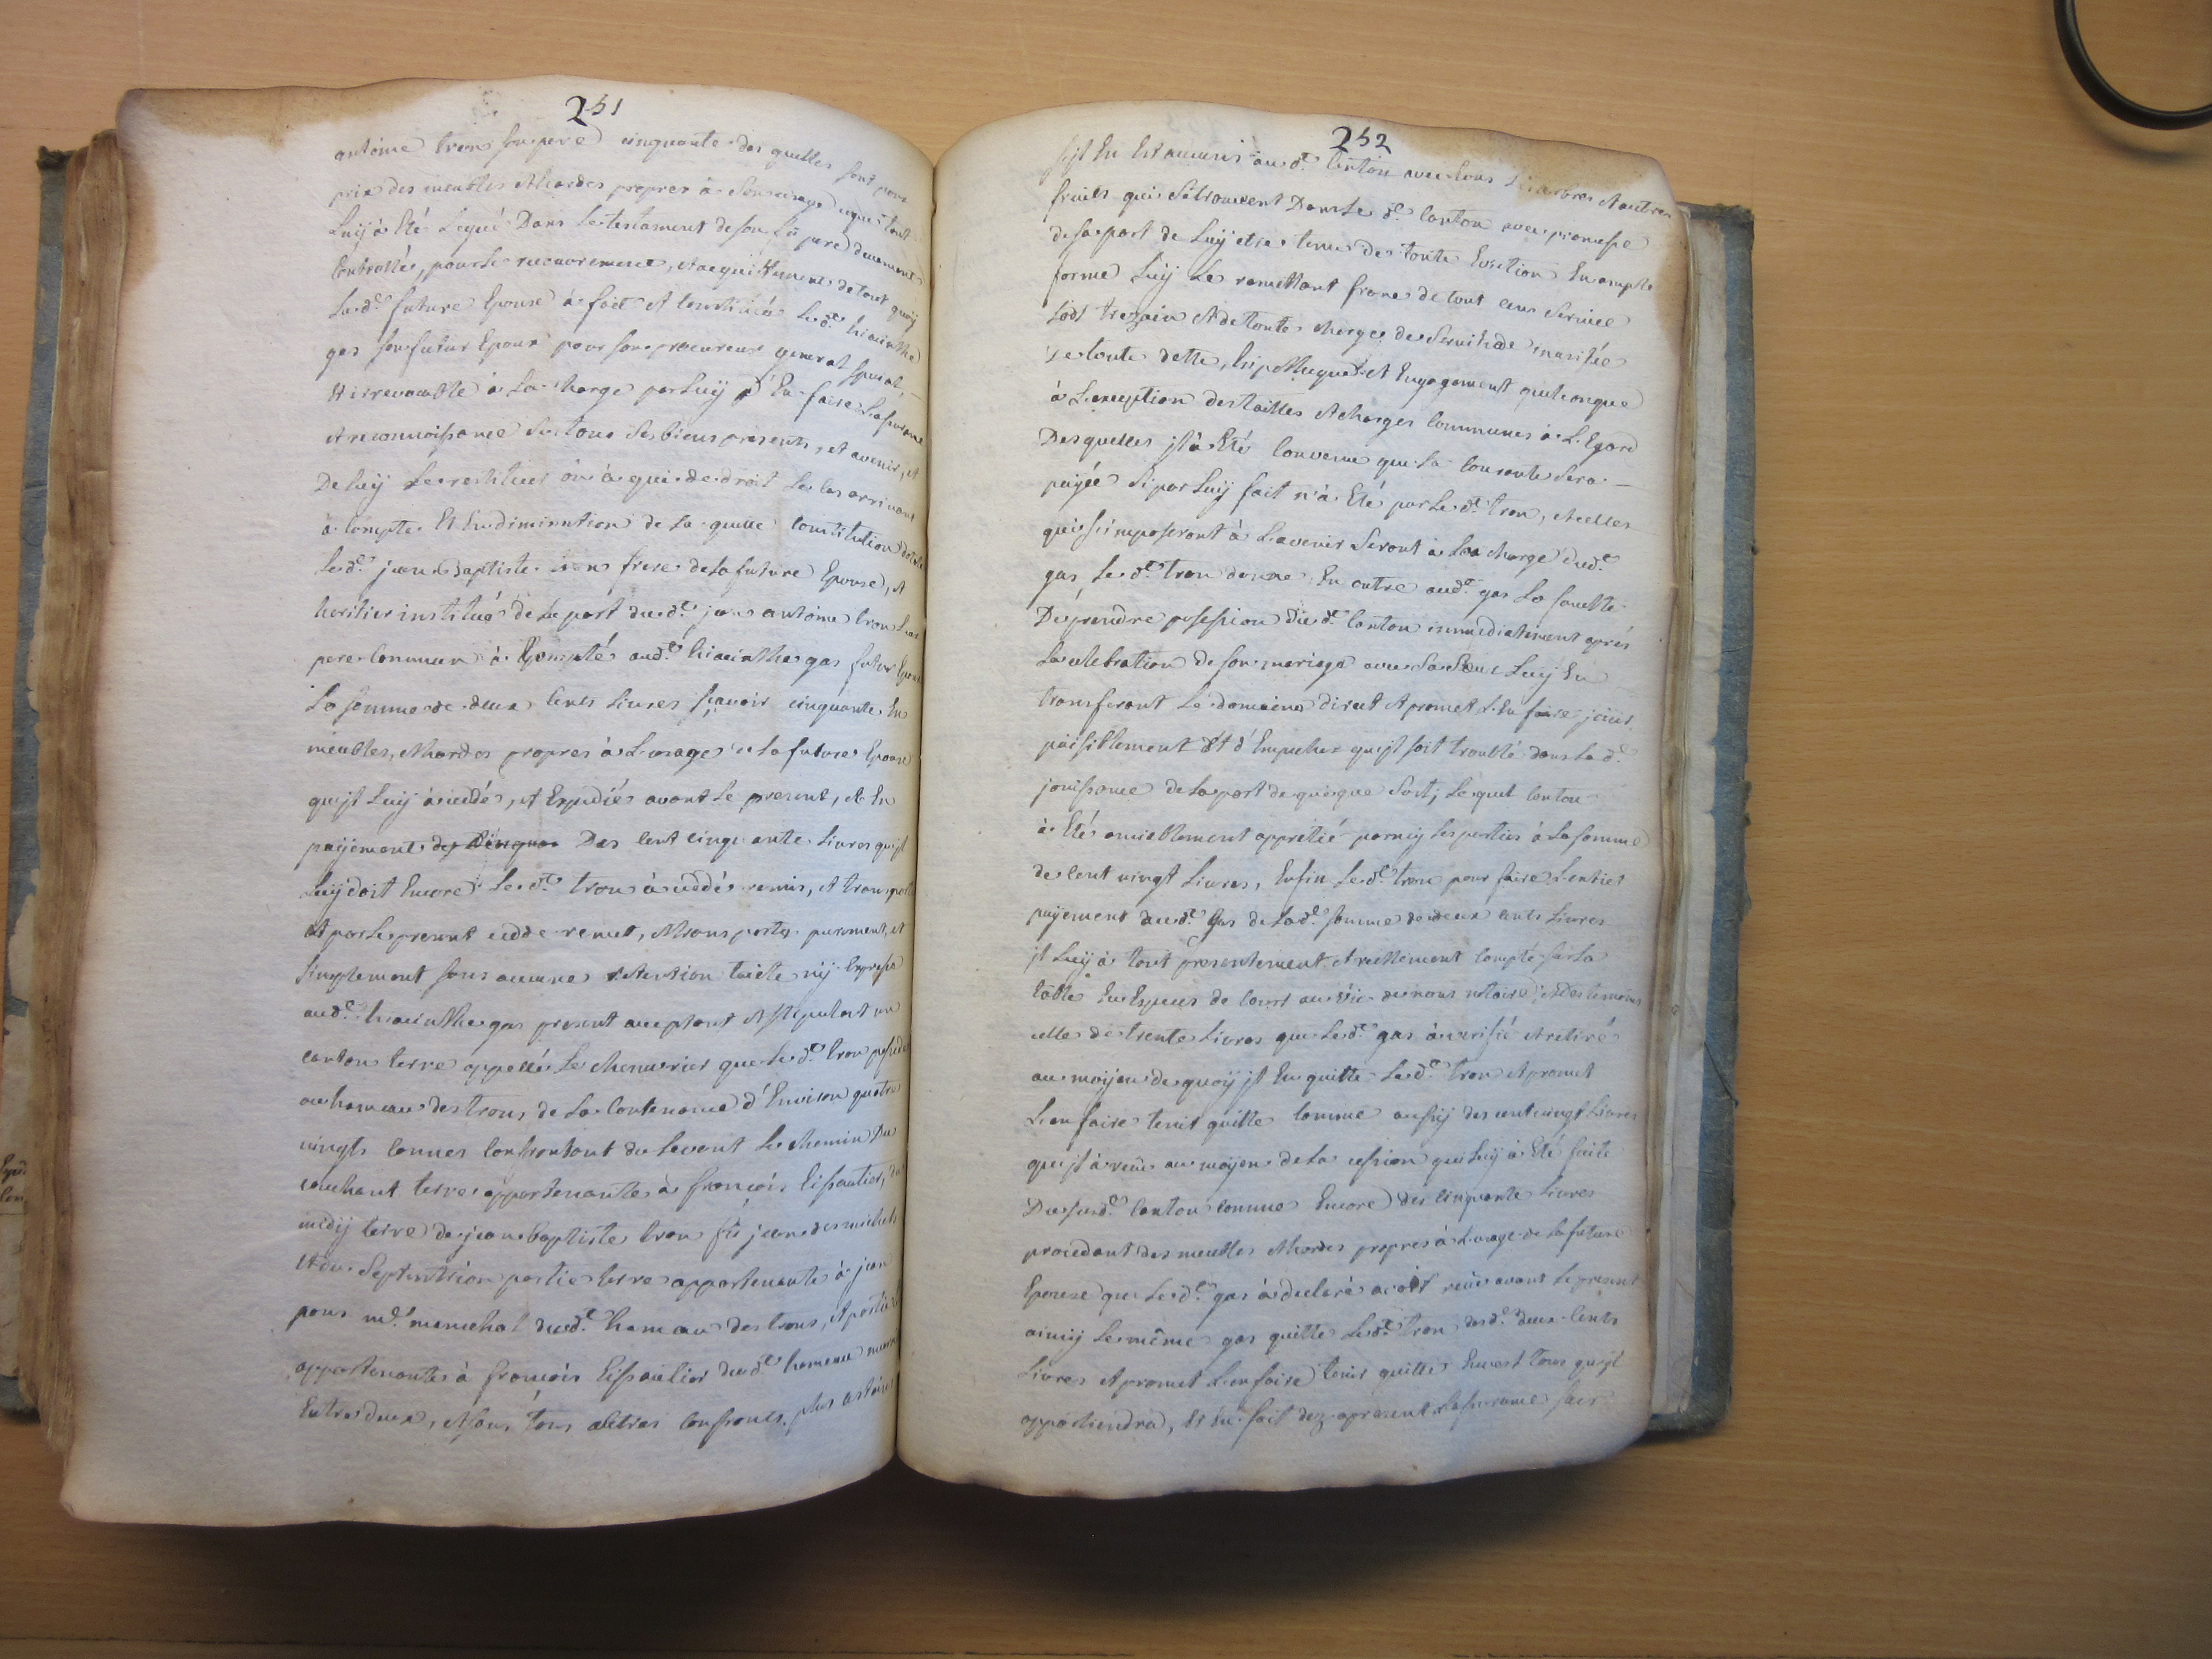 251
antoine tron son pere cinquante des quelles sont pour
prix des meubles et hardes propres à son usage le que tout
Luij à Eté Legué Dans Le testament de son fû pere deuement
Controllée, pour Le recouvrement, et acquittement de tout quoij
La d.e future Epouse à fait et Constitué Le d.t hiacinthe
gas son futur Epoux pour son procureur general special,
Et irrevocable à La charge par Luij d'En faire L'assurance
et reconnoissance sur tous ses biens presents, et avenir, et
De Luij Le restituer ou à qui de droit Le Cas arrivant
à Compte et En diminution de La quelle Constitution dotale
Le d.t jean Baptiste tron frere de La future Epouse, et
heritier institué de La part dud.t jean antoine tron Leur
pere Commun à Compté aud.t hiacinthe gas futur Epoux
La somme de deux Cents Livres sçavoir cinquante En
meubles, et hardes propres à L'usage de La future Epouse
qu'jl Luij à cedé, et Expedié avant Le present, et En
paijement des Cinqua Des Cent cinquante Livres qu'jl
Luij doit Encore Le d.t tron à cedé remis, et transporté
et par Le present cedde remet, et transporte purement, et
simplement sans aucune retention taicte nij Expresse
aud.t hiacinthe gas present acceptant et stipulant un
canton terre appellé Le chenevrier que Le d.t tron possede
au hameau des trons, de La Contenance d'Environ quatre
vingts Cannes Confrontant du Levant Le chemin Du
couchant terre appartenante à francois Eissautier, du
midij terre de jean baptiste tron fû jean des michels
et du Septentrion partie terre appartenante à jean
pons m.e marechal dud.t hameau des trons, et partie
appartenante à francois Eissautier dud.t hameau
Entre deux, et sous tous autres Confronts. plus
252
s'jl En Est au d.t Canton avec tous Les arbres et autres
fruits qui se trouvent Dans Le d.t Canton avec promesse
de sa part de Luij etre tenu de toute Eviction En ample
forme Luij Le remettant franc de tout cens service
Lods trezain et de toute charge de servitude inusitée
de toute dette, hipotheque et Engagement quelconque
à L'exception des tailles et charges Communes à L'Egard
Desquelles jl à Eté Convenu que La Courante sera
paijée si par Luij fait n'à Eté par Le d.t tron, et celles
qui s'imposeront à L'avenir seront à La charge dud.t
gas, Le d.t tron donne En outre aud.t gas La faculté
De prendre possession du d.t Canton immediatement aprés
La celebration de son mariage avec sa sœur Luij En
transferant Le domaine direct et promet L'En faire joüir
paisiblement et d'Empecher qu'jl soit troublé dans La d.e
jouissance de La part de qui que soit; Le quel Canton
à Eté amicablement apprétié parmij Les parties à La somme
de Cent vingt Livres, Enfin Le d.t tron pour faire L'entier
paijement aud.t gas de La d.e somme de deux Cents Livres
jl Luij à tout presentement et reellement Compté sur La
table En Especes de Cours au veü de nous notaire, et des temoins
celle de trente Livres que Le d.t gas à verifié et retiré
au moijen de quoij jl En quitte Le d.t tron et promet
L'en faire tenir quitte Comme aussij des cent vingt Livres
qu'jl à reçûe au moijen de La cession qui Luij à Eté faite
Du susd.t Canton comme Encore des Cinquante Livres
procedant des meubles et hardes propres à L'usage de La future
Epouse que Le d.t gas à declaré avoir reçûe avant Le present
ainsij Le même gas quitte Le d.t tron des d.es deux Cents
Livres et promet L'en faire tenir quitte Envers tous qu'jl
appartiendra, et En fait dez apresent L'assurance sur